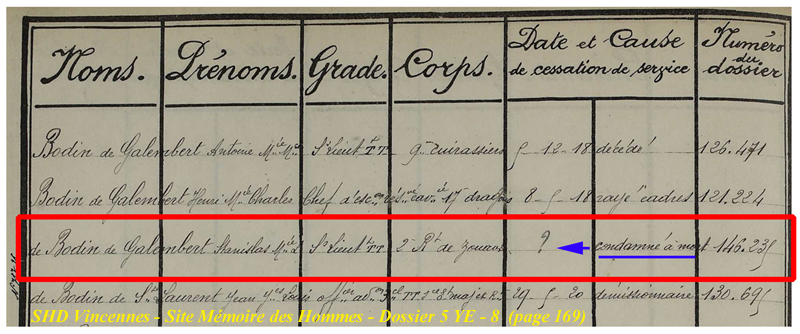 Noms. Prénoms. Grade. Corps. Date et Cause de cessation de service Numéro du dossier
Bodin de Galembert Antoine Mie Me S/Lieut t TT 9e cuirassiers 5-12-18 décédé 126.471
Bodin de Galembert Henri Mie Charles Chef d'esc on rés ve cav ie 17e dragons 8-5-18 rayé cadres 121.224
de Bodin de Galembert Stanislas Mie L S/Lieut t TT 2e Rt de Zouaves ? condamné à mort 146.235
de Bodin de St Laurent Jean off er ad on 3e cl TT 29-5-20 démissionnaire 130.695
SHD Vincennes - Site Mémoire des Hommes - Dossier 5 YE - 8 (page 169)